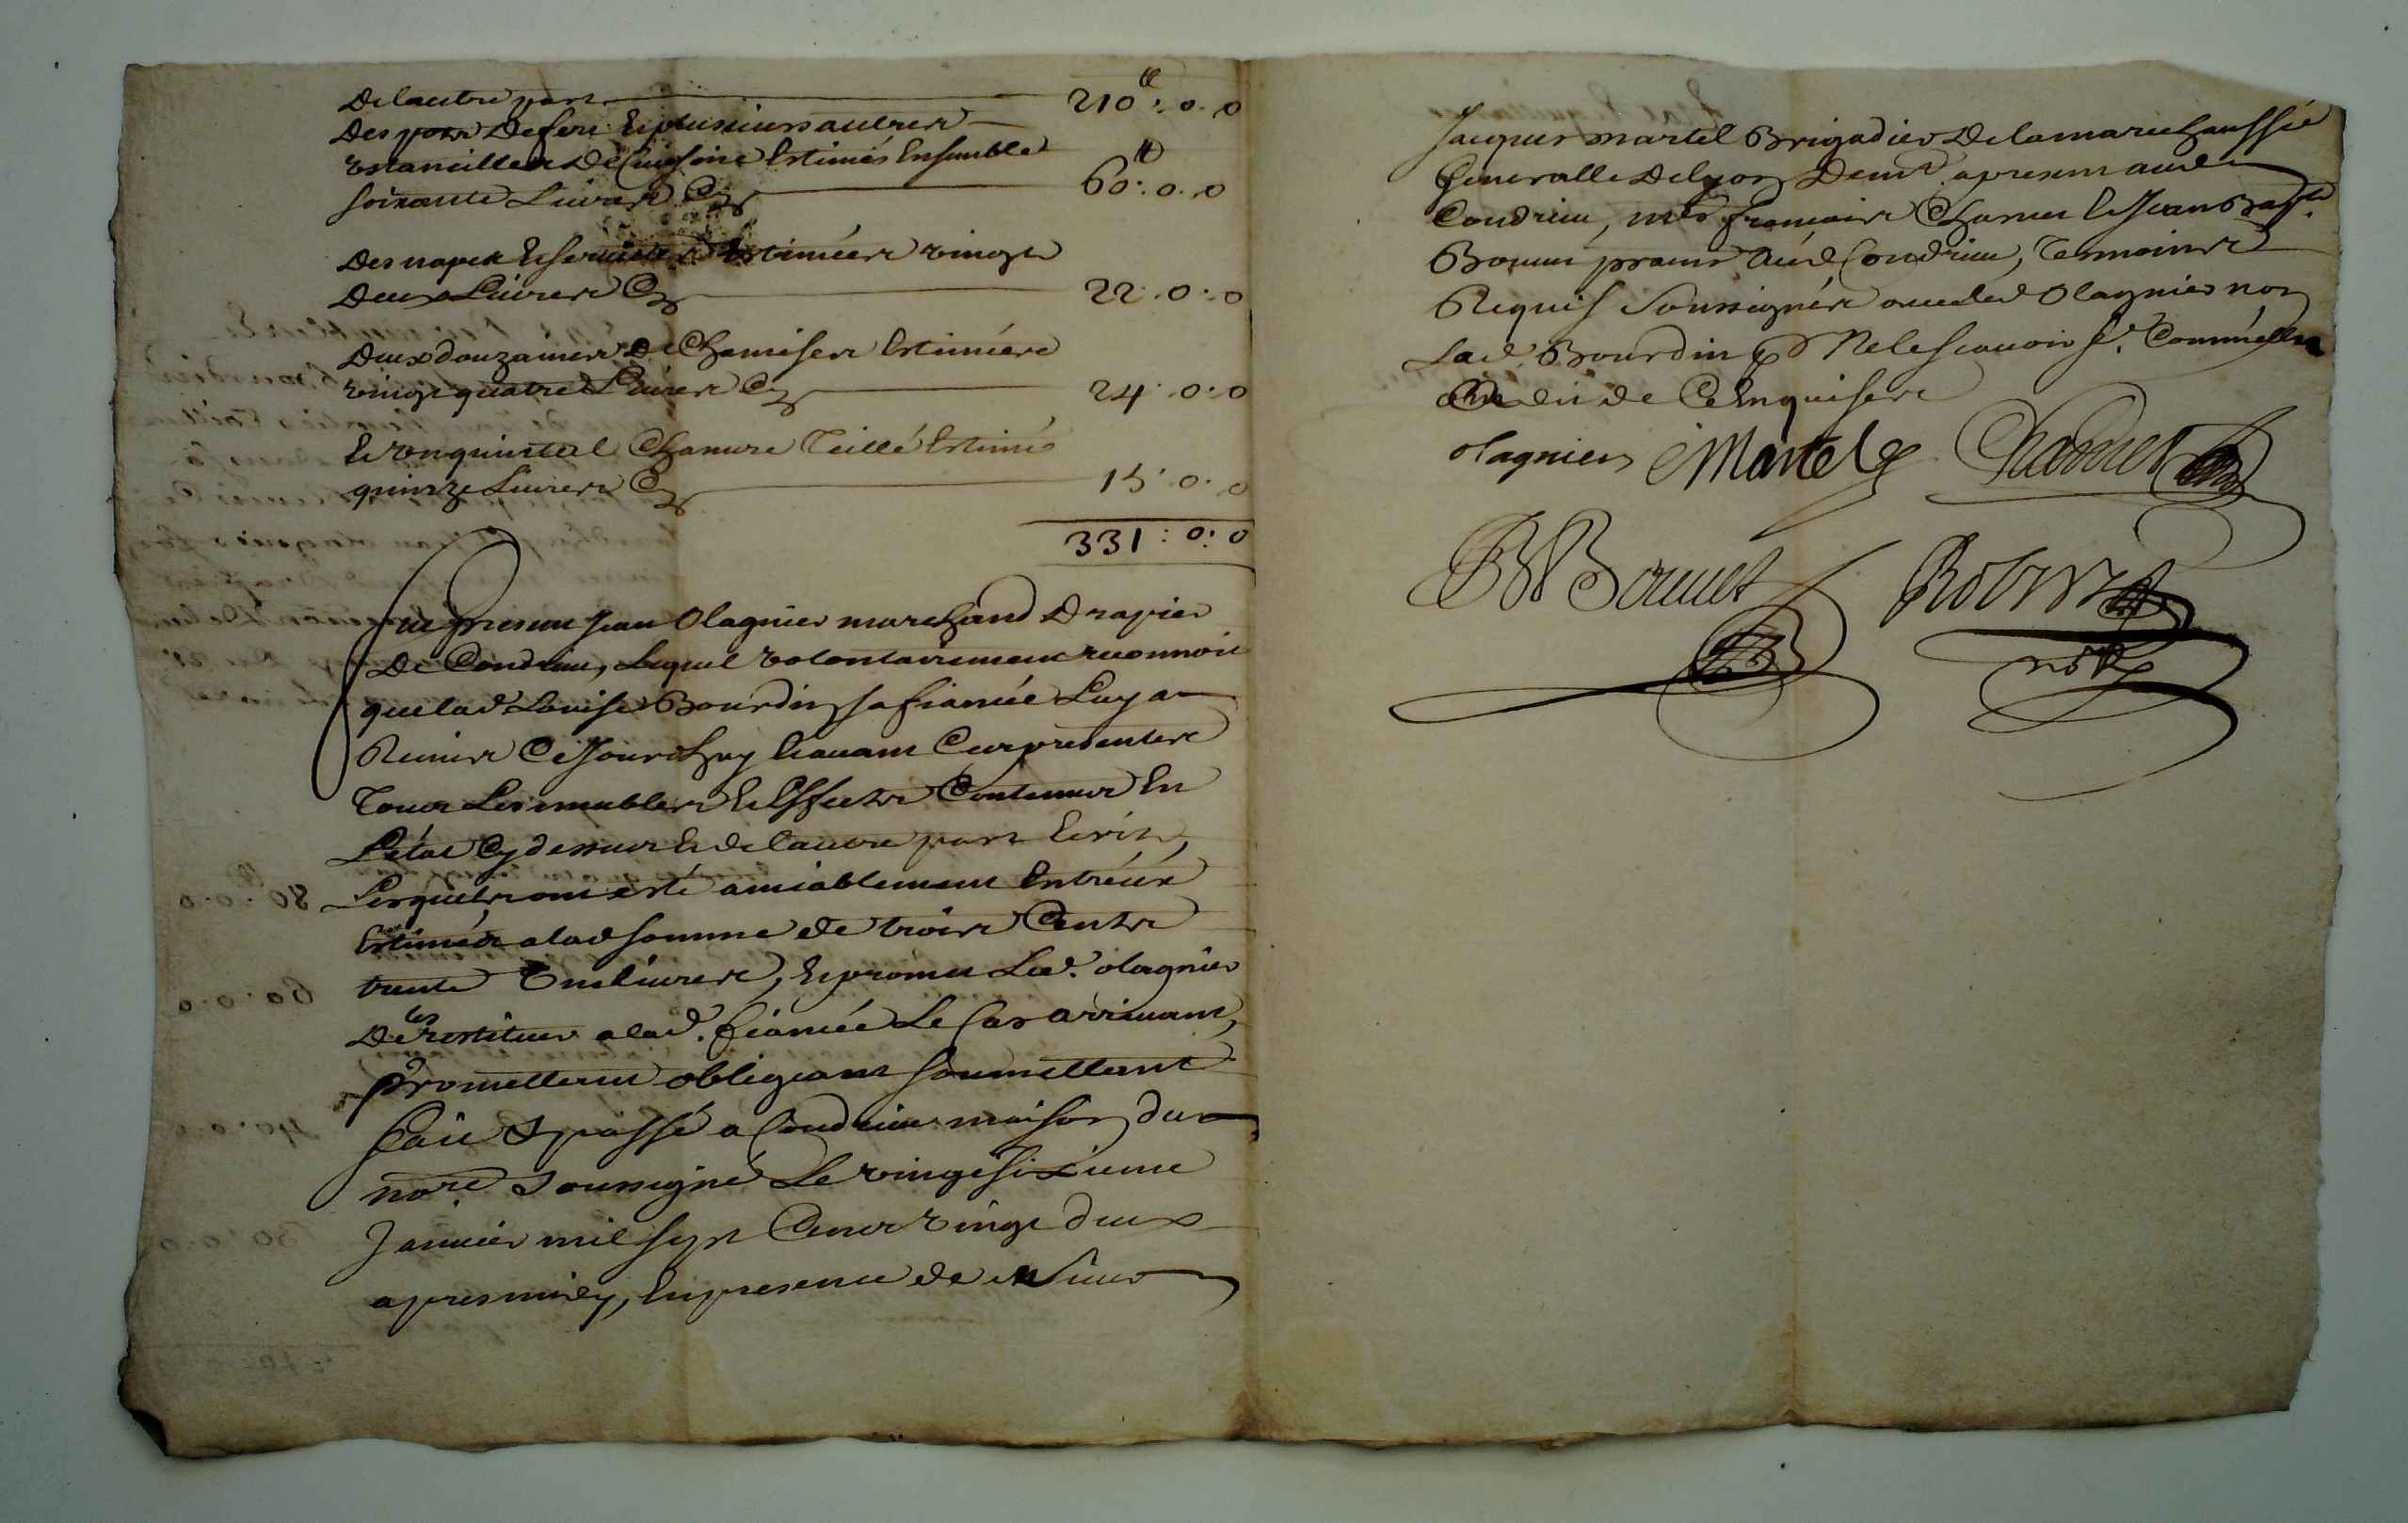 De lautre part 210ᵗᵗ : 0 : 0
Des pots De fert Et plusieurs autres
Estancilles De Cuisine Estimés Ensemble
soixante Livres Cy 60ᵗᵗ : 0 : 0
Des napes Et serviettes Estimées vingt
Deux Livres Cy 22 : 0 : 0
Deux douzaines De Chemises Estimées
vingt quatre Livres Cy 24 : 0 : 0
Et un quintal Chanvre Teillé Estimé
quinze Livres Cy 15 : 0 : 0
331 : 0 : 0
fut present Jean Olagnier marchand Drapier
De Condrieu, Lequel volontairement reconnoit
que lad. Louise Bourdin sa fiancée Luy a
Remis Cejourdhuy Et avant Ces presentes
Tous Les meubles Et Effects Contenus En
L'état Cy dessus Et de lautre part Ecrits,
Lesquels ont esté amiablement Entréux
Estimés a lad somme de trois Cents
trente Un livres, Et promet Led. olagnier
De les restituer a lad. fiancée Le Cas arrivant,
promettant obligeant soumettant
fait & passé a Condrieu maison du
nore. soussigné Le vingt sixieme
Janvier mil sept Cents vingt deux
apres midy, En presence de Sieur
Jacques martel Brigadier De la marechaussée
Generalle De lyon Demt. a present aud.
Condrieu, Francois Charvet Et Jean Bapte.
Bonnet aud Condrieu, Temoins
Requis Soussignés avec led Olagnier non
Lad. Bourdin pr. Ne le scavoir f.e Comme elle
a dit de Ce Enquise
olagnier Martel Charvet
JB Bonnet Robert
nore
80 : 0 : 0
60 : 0 : 0
40 : 0 : 0
30 : 0 : 0